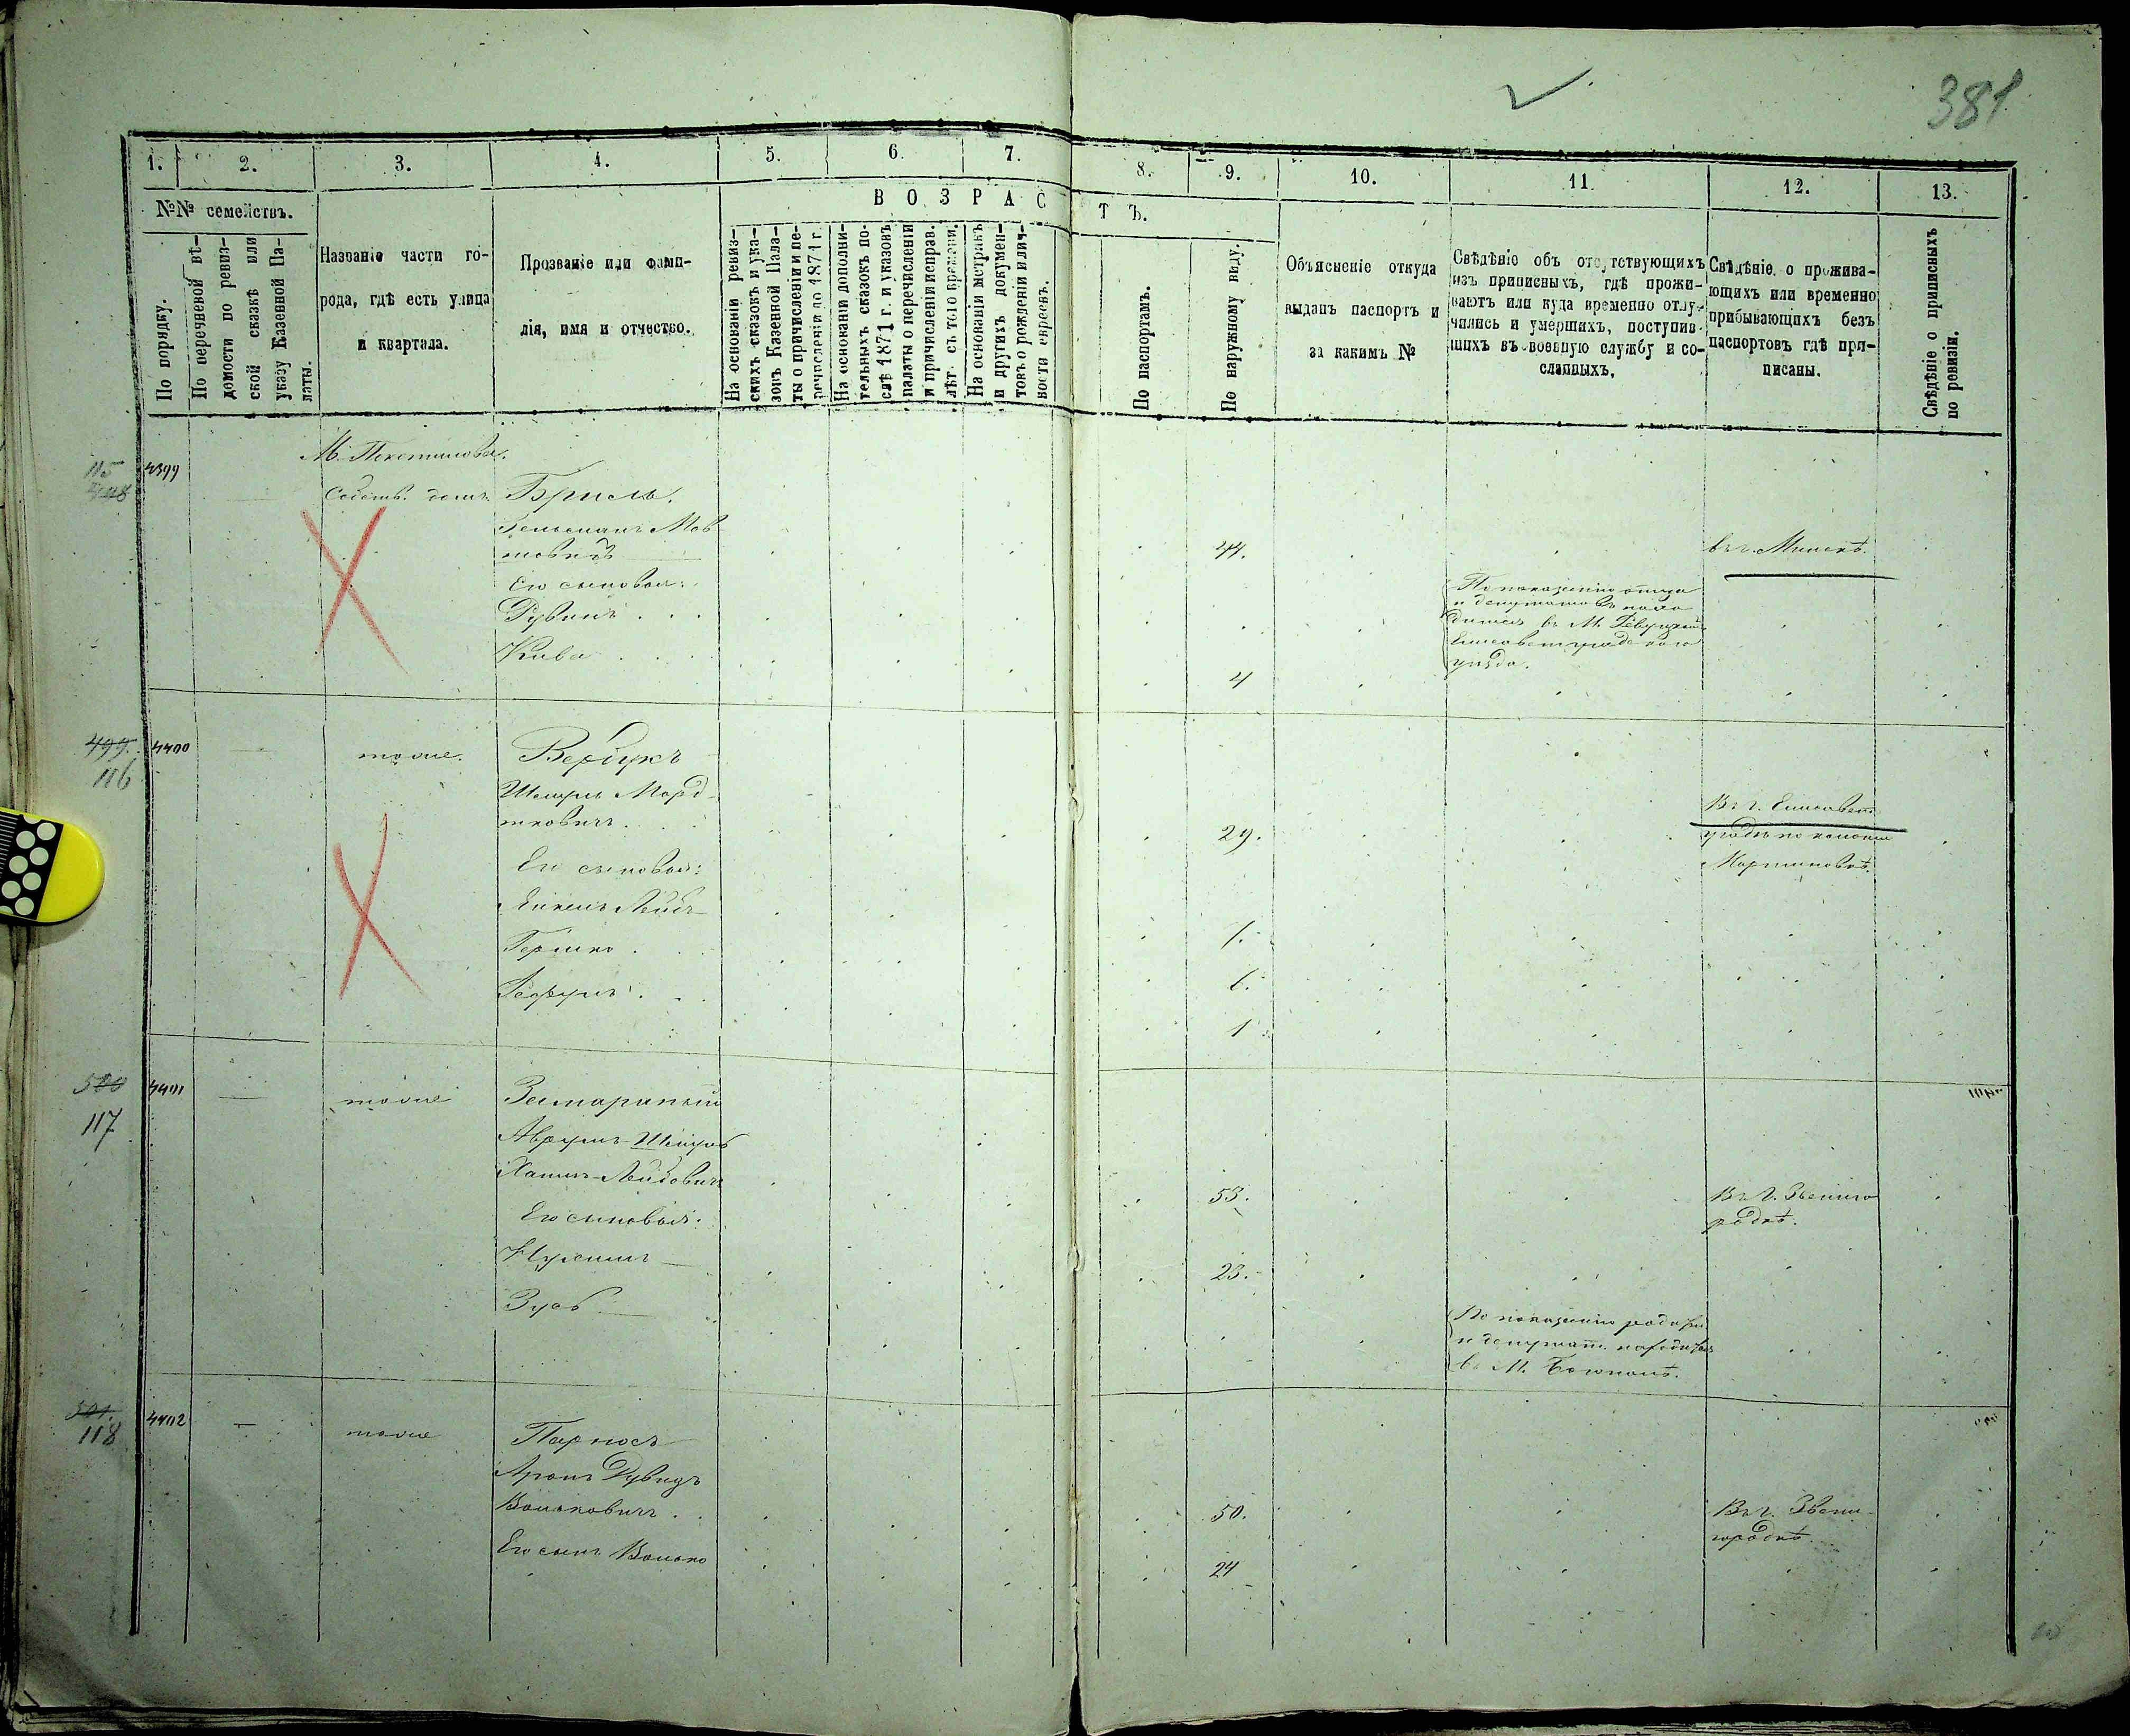 381
1. 2. 3. 4. 5. 6. 7. 8. 9. 10. 11. 12. 13.
№№ семействъ.
По порядку.
По перечневой вѣ-
домости по ревиз-
ской сказкѣ или
указу Казенной Па-
латы.
Названіе части го-
рода, гдѣ есть улица
и квартала.
Прозваніе или фами-
лія, имя и отчество.
ВОЗРАСТЪ.
На основаніи ревиз-
скихъ сказокъ и ука-
зовъ Казенной Пала-
ты о причисленіи и пе-
речисленіи до 1871 г.
На основаніи дополни-
тельныхъ сказокъ по-
слѣ 1871 г. и указовъ
палаты о перечисленіи
и причисленіи исправ.
лѣт. съ того времени.
На основаніи метрикъ
и другихъ докумен-
товъ о рожденіи и лич-
ности евреевъ.
По паспортамъ.
По наружному виду.
Объясненіе откуда
выданъ паспортъ и
за какимъ №
Свѣдѣніе объ отсутствующихъ
изъ приписныхъ, гдѣ прожи-
ваютъ или куда временно отлу-
чились и умершихъ, поступив-
шихъ въ военную службу и со-
сланныхъ.
Свѣдѣніе о прожива-
ющихъ или временно
прибывающихъ безъ
паспортовъ гдѣ при-
писаны.
Свѣдѣніе о приписныхъ
по ревизіи.
115
4399
Бриль.
44.
въ г. Минскѣ.
Его сыновья:
Рувинъ
Кива
4
По показанію отца
и депутатовъ нахо
дится въ М.
Елисаветградскаго
уѣзда.
499.
116
4400
тоже.
Вербукъ
Шмуль Морд-
ковичъ
29.
Въ г. Елисавет
градѣ по колоніи
Его сыновья:
Лейбъ
Гершко
1
500
117
4401
тоже
Замараный
Аврумъ-Шмуль
Хаимъ-Лейбовичъ
53.
Въ г. Звениго
родкѣ.
Его сыновья:
Нусимъ
23.
Зусь
По показанію родител
и депутат. находится
въ М.
501.
118
4402
тоже
Парносъ
Аронъ Дувидъ
Вольковичъ
50.
Въ г. Звени-
городкѣ
Его сынъ Волько
24